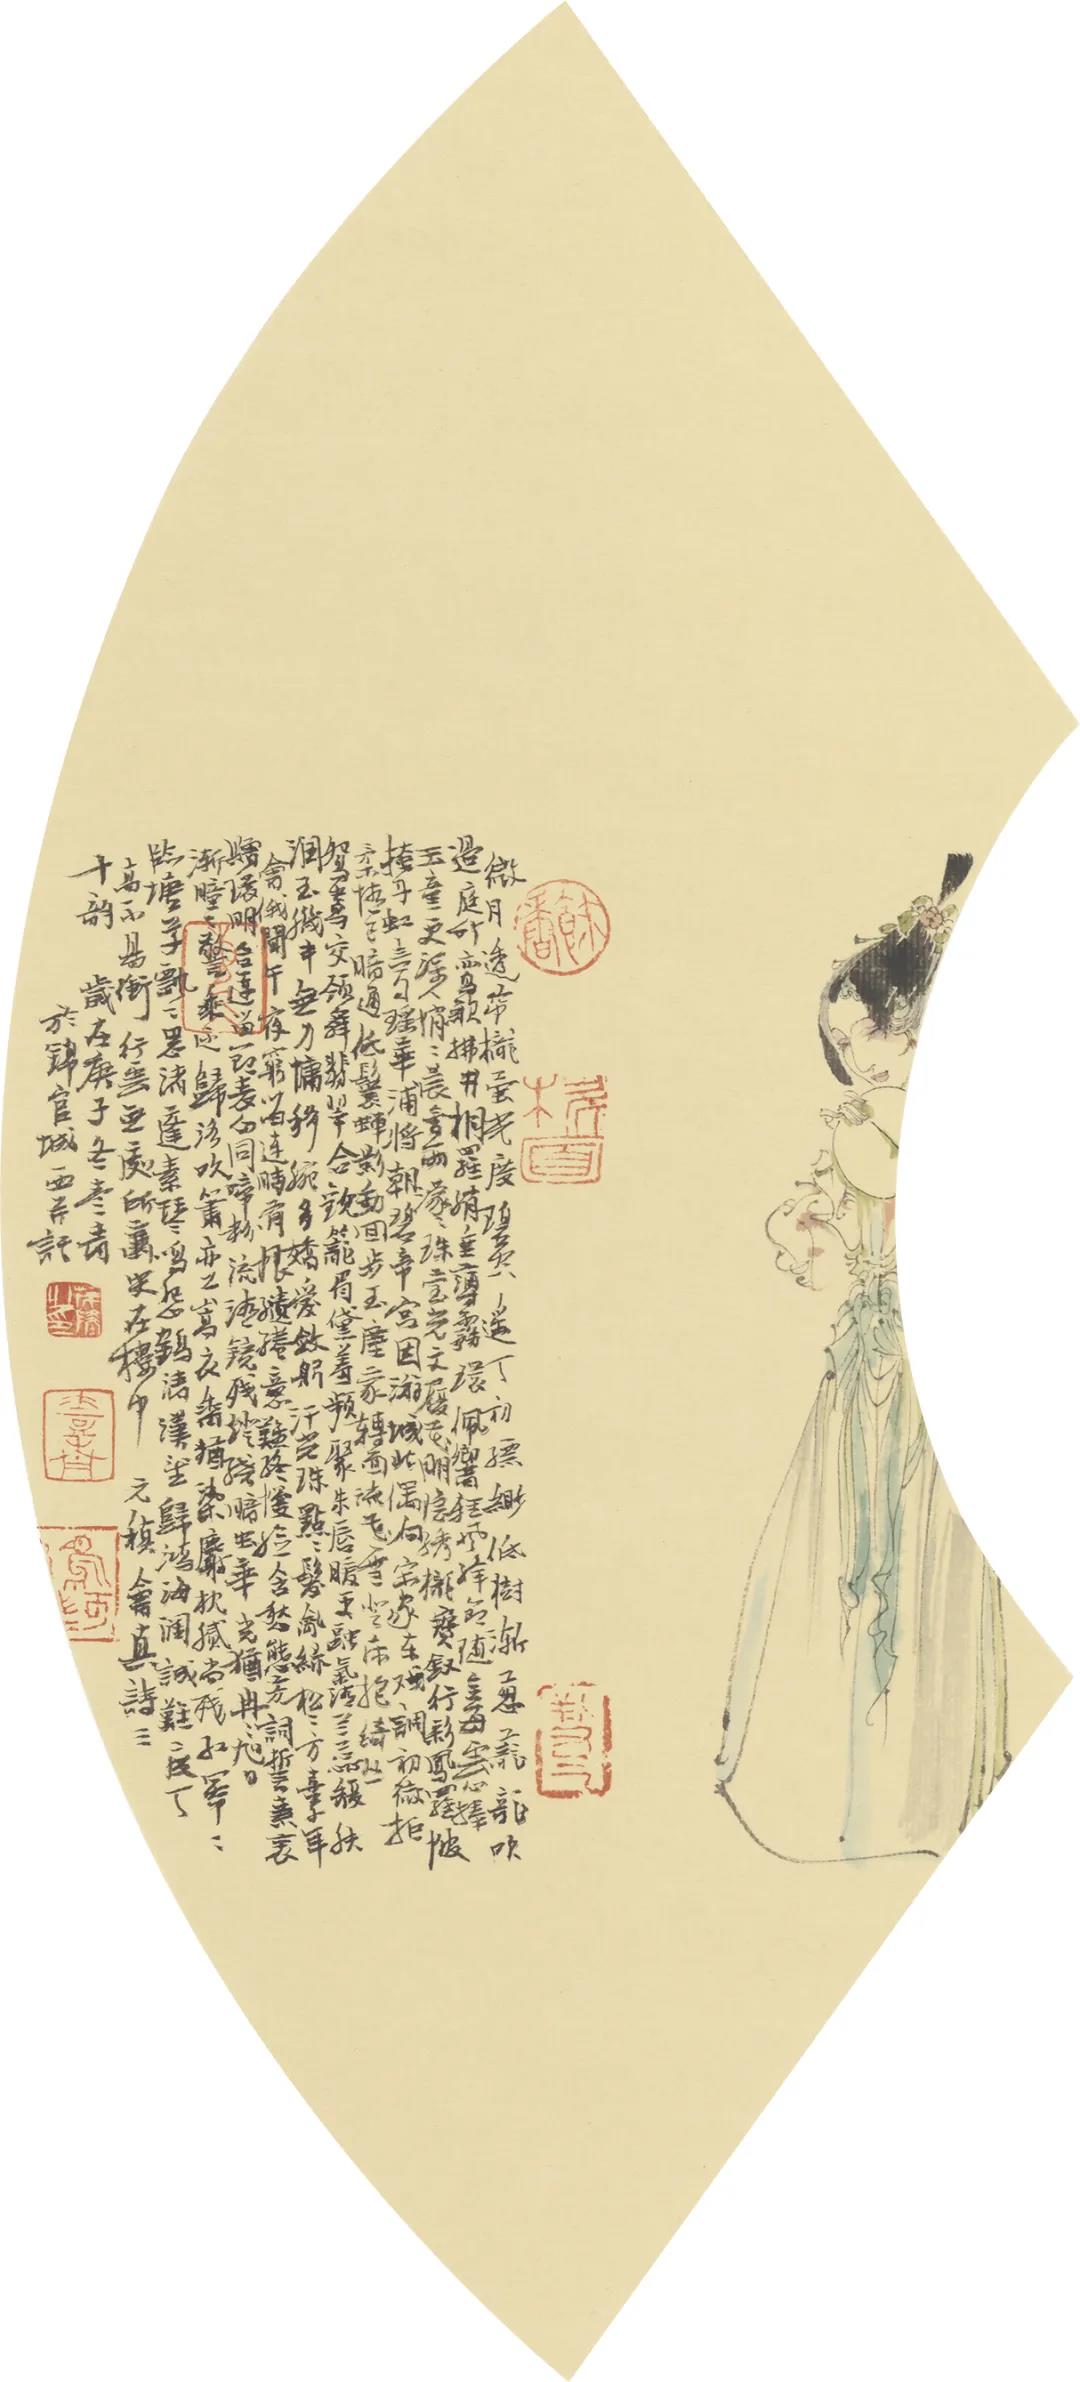 微月透帘櫳螢光度碧空遥天初縹緲低樹漸葱蘢龍吹
過庭竹鸞歌拂井桐羅綃垂薄霧環佩響輕風絳節隨金母雲心捧
玉童更深人悄〻晨會雨濛〻珠瑩光文履花明隱綉櫳寶釵行彩鳳羅帔
掩丹虹言自瑶華浦將朝碧帝宫因游城北偶向宋家東戲調初微拒
柔情已暗通低鬟蟬影動回步玉塵蒙轉面流花雪登床抱綺丛
鴛鴦交頸舞翡翠合歡籠眉黛羞頻聚朱唇暖更融氣清蘭蕊馥膚
潤玉肌丰無力慵移腕多嬌愛斂躬汗光珠點〻髮亂綠松〻方喜千年
會俄聞午夜窮留連時有恨繾綣意難終慢臉含愁態芳詞誓素衷
贈環明合運留結表心同啼粉流清鏡殘燈繞暗虫華光猶冉〻旭日
漸曈〻警乘還歸洛吹簫亦上嵩衣香猶染麝枕膩尚殘紅冪〻
臨塘草飄〻思渚蓬素琴鳴怨鶴清漢望歸鴻海闊誠難渡天
高不易衝行雲無處所蕭史在樓中 元稹會真詩三
十韵 歲在庚子冬
於錦官城西